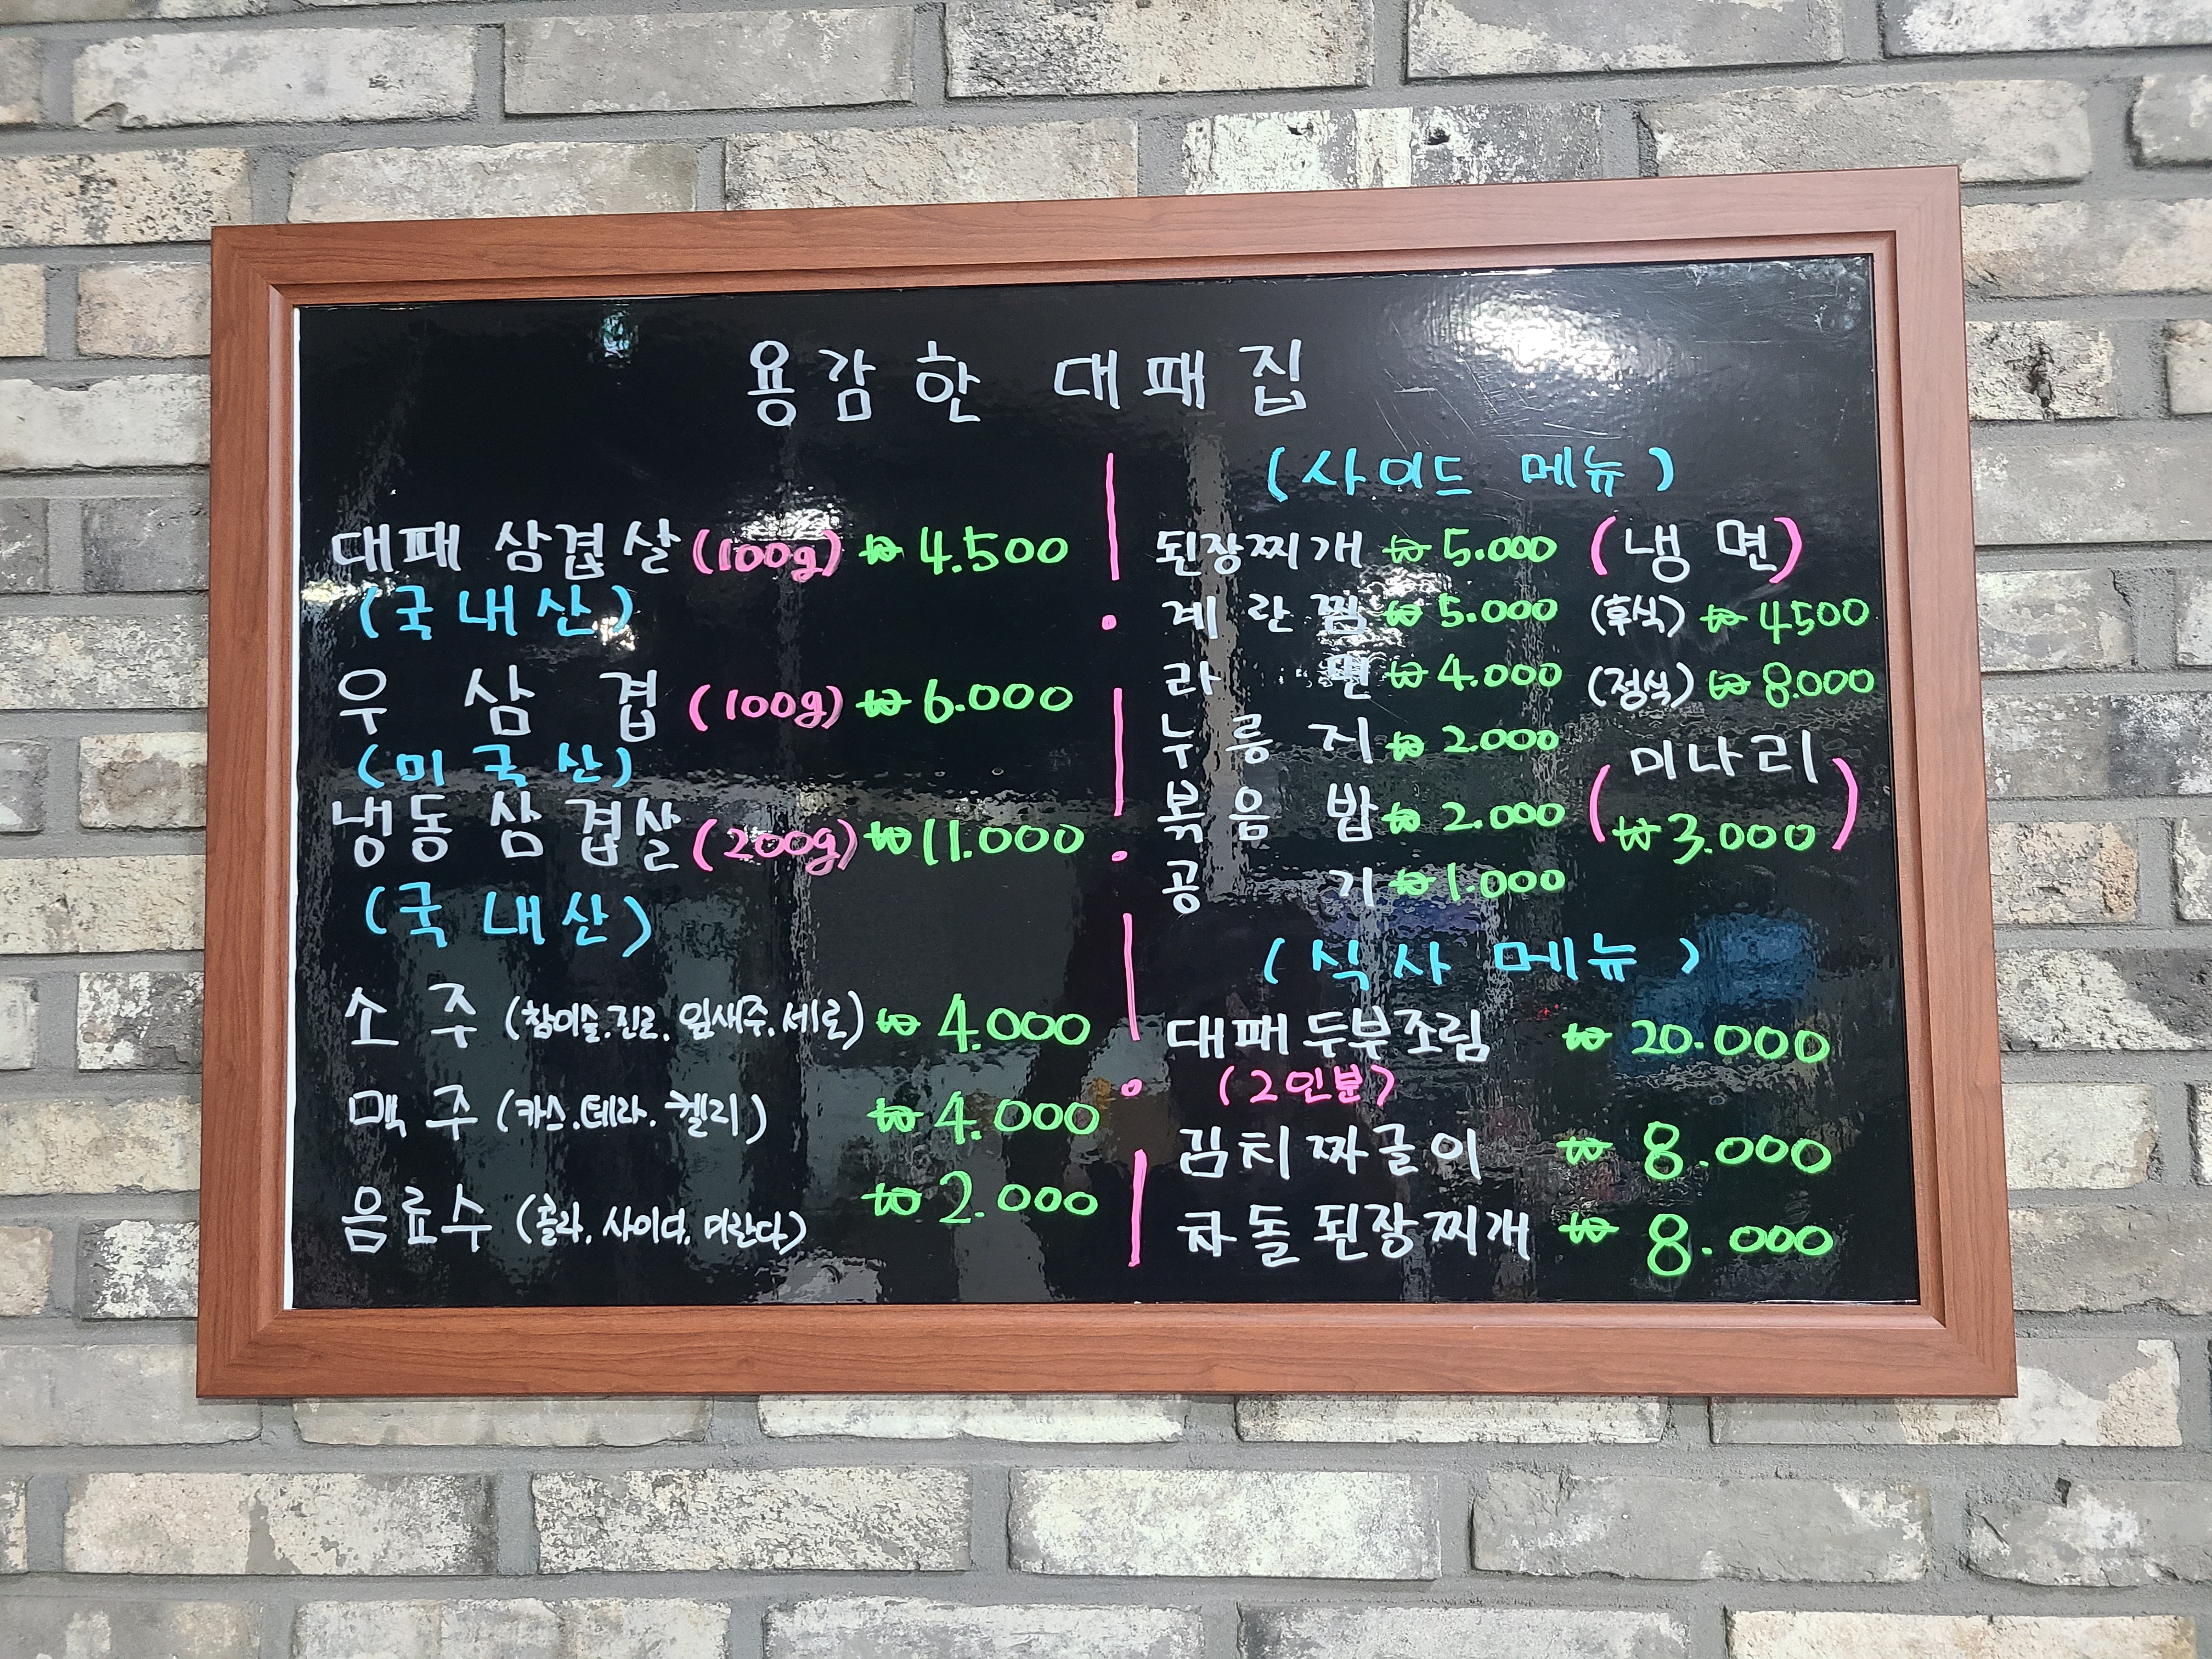 용감한 대패집
대패 삼겹살 (100g) ₩ 4.500
(국내산)
우 삼 겹 (100g) ₩ 6.000
(미국산)
냉동 삼겹살 (200g) ₩ 11.000
(국내산)
소 주 (참이슬.진로.잎새주.새로) ₩ 4.000
맥 주 (카스.테라.켈리) ₩ 4.000
음료수 (콜라.사이다.미란다) ₩ 2.000
(사이드 메뉴)
된장찌개 ₩ 5.000
계란찜 ₩ 5.000
라 면 ₩ 4.000
누룽지 ₩ 2.000
볶음 밥 ₩ 2.000
공 기 ₩ 1.000
(냉면)
(후식) ₩ 4500
(정식) ₩ 8.000
(미나리
₩ 3.000)
(식사 메뉴)
대패 두부조림 ₩ 20.000
(2인분)
김치짜글이 ₩ 8.000
차돌된장찌개 ₩ 8.000